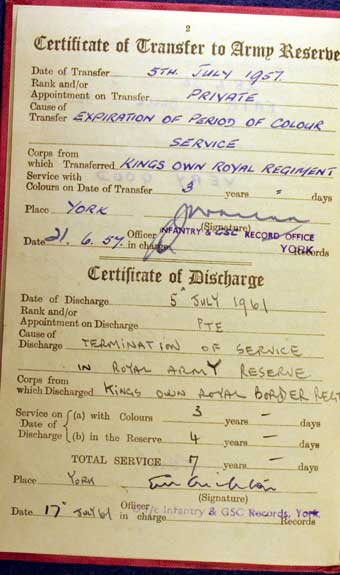 2
Certificate of Transfer to Army Reserve
Date of Transfer 5TH. JULY 1957.
Rank and/or
Appointment on Transfer PRIVATE
Cause of
Transfer EXPIRATION OF PERIOD OF COLOUR
SERVICE
Corps from
which Transferred KINGS OWN ROYAL REGIMENT
Service with
Colours on Date of Transfer 3 years " days
Place YORK
(Signature)
Officer INFANTRY & GSC RECORD OFFICE
Date 21.6.57 in charge YORK Records
Certificate of Discharge
Date of Discharge 5 JULY 1961
Rank and/or
Appointment on Discharge PTE
Cause of
Discharge TERMINATION OF SERVICE
IN ROYAL ARMY RESERVE
Corps from
which Discharged KINGS OWN ROYAL BORDER REGT
Service on (a) with Colours 3 years — days
Date of
Discharge (b) in the Reserve 4 years — days
TOTAL SERVICE 7 years — days
Place YORK
(Signature)
Officer i/c Infantry & GSC Records, York.
Date 17 July 61 in charge Records